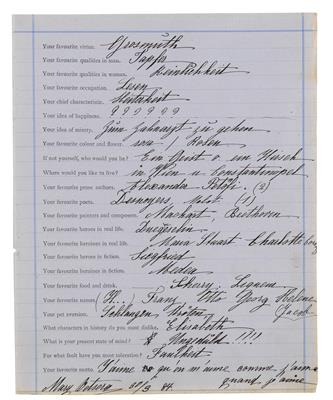 Your favourite virtue. Grosmuth
Your favourite qualities in man. Tapfer
Your favourite qualities in woman. Reinlichkeit
Your favourite occupation. Lesen
Your chief characteristic. Heiterkeit
Your idea of happiness. ? ? ? ? ? ?
Your idea of misery. Zum Zahnarzt zu gehen
Your favourite colour and flower. rosa / Rosen
If not yourself, who would you be? Ein Geist o. ein Mensch
Where would you like to live? in Wien u Constantinopel
Your favourite prose authors. Alexander Petöfi. (?)
Your favourite poets.
Your favourite painters and composers. Mackart, Beethoven
Your favourite heroes in real life.
Your favourite heroines in real life. Maria Stuart Charlotte
Your favourite heroes in fiction. Siegfried
Your favourite heroines in fiction. Medea
Your favourite food and drink. Sherry
Your favourite names. Franz Otto Georg Helene
Your pet aversion. Schlangen Kröten Jacob
What characters in history do you most dislike. Elisabeth
What is your present state of mind? Ungeduld !!!!
For what fault have you most toleration? Faulheit
Your favourite motto. J'aime qu'on m'aime comme j'aime
quand j'aime
Mary 30/3 84.